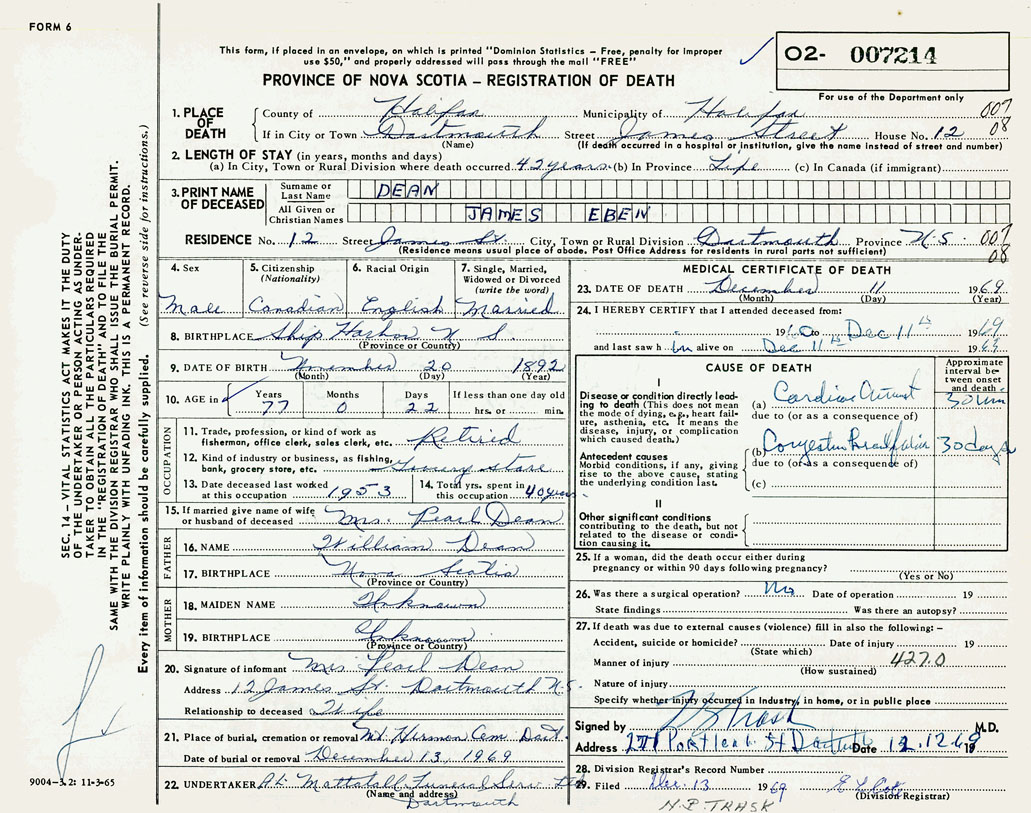 FORM 6
This form, if placed in an envelope, on which is printed "Dominion Statistics – Free, penalty for improper
use $50," and properly addressed will pass through the mail "FREE"
O2- 007214
PROVINCE OF NOVA SCOTIA – REGISTRATION OF DEATH
For use of the Department only
1. PLACE OF DEATH
County of Halifax Municipality of Halifax 007
If in City or Town Dartmouth Street James Street House No. 12 08
(Name) (If death occurred in a hospital or institution, give the name instead of street and number)
2. LENGTH OF STAY (in years, months and days)
(a) In City, Town or Rural Division where death occurred 42 years (b) In Province Life (c) In Canada (if immigrant)
3. PRINT NAME OF DECEASED
Surname or Last Name DEAN
All Given or Christian Names JAMES EBEN
RESIDENCE No. 12 Street James St. City, Town or Rural Division Dartmouth Province N.S. 007
(Residence means usual place of abode. Post Office Address for residents in rural parts not sufficient) 08
4. Sex
Male
5. Citizenship (Nationality)
Canadian
6. Racial Origin
English
7. Single, Married, Widowed or Divorced (write the word)
Married
8. BIRTHPLACE Ship Harbor N.S.
(Province or Country)
9. DATE OF BIRTH November 20 1892
(Month) (Day) (Year)
10. AGE in Years Months Days If less than one day old
77 0 22 hrs. or min.
OCCUPATION
11. Trade, profession, or kind of work as
fisherman, office clerk, sales clerk, etc. Retired
12. Kind of industry or business, as fishing,
bank, grocery store, etc. Grocery store
13. Date deceased last worked
at this occupation 1953
14. Total yrs. spent in
this occupation 40 years
15. If married give name of wife
or husband of deceased Mrs. Pearl Dean
FATHER
16. NAME William Dean
17. BIRTHPLACE Nova Scotia
(Province or Country)
MOTHER
18. MAIDEN NAME Unknown
19. BIRTHPLACE Unknown
(Province or Country)
20. Signature of informant Mrs Pearl Dean
Address 12 James St. Dartmouth N.S.
Relationship to deceased Wife
21. Place of burial, cremation or removal Mt. Hermon Cem Dart.
Date of burial or removal December 13, 1969
22. UNDERTAKER Mattatall Funeral Serv Ltd
(Name and address)
Dartmouth
MEDICAL CERTIFICATE OF DEATH
23. DATE OF DEATH December 11 1969
(Month) (Day) (Year)
24. I HEREBY CERTIFY that I attended deceased from:
1960 to Dec 11th 1969
and last saw him alive on Dec 11th 1969
CAUSE OF DEATH
Approximate interval between onset and death
I
Disease or condition directly leading to death (This does not mean the mode of dying, e.g., heart failure, asthenia, etc. It means the disease, injury, or complication which caused death.)
(a) Cardiac Arrest 30 min
due to (or as a consequence of)
Antecedent causes
Morbid conditions, if any, giving rise to the above cause, stating the underlying condition last.
(b) 30 days
due to (or as a consequence of)
(c)
II
Other significant conditions
contributing to the death, but not
related to the disease or condition causing it.
25. If a woman, did the death occur either during
pregnancy or within 90 days following pregnancy?
(Yes or No)
26. Was there a surgical operation? No Date of operation 19
State findings Was there an autopsy?
27. If death was due to external causes (violence) fill in also the following: –
Accident, suicide or homicide? Date of injury 19
(State which)
Manner of injury 427.0
(How sustained)
Nature of injury
Specify whether injury occurred in industry, in home, or in public place
Signed by Trask M.D.
Address Portland St Dartmouth Date 12.12.69 19
28. Division Registrar's Record Number
29. Filed Dec. 13 1969
(Division Registrar)
H.B. TRASK
SEC. 14 – VITAL STATISTICS ACT MAKES IT THE DUTY
OF THE UNDERTAKER OR PERSON ACTING AS UNDER-
TAKER TO OBTAIN ALL THE PARTICULARS REQUIRED
IN THE "REGISTRATION OF DEATH" AND TO FILE THE
SAME WITH THE DIVISION REGISTRAR WHO SHALL ISSUE THE BURIAL PERMIT.
WRITE PLAINLY WITH UNFADING INK. THIS IS A PERMANENT RECORD.
Every item of information should be carefully supplied. (See reverse side for instructions.)
9004-3.2: 11-3-65